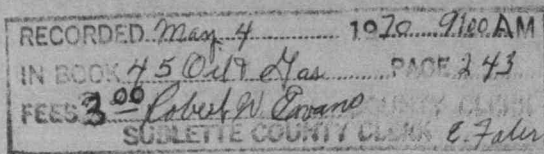 RECORDED May 4 1970 9:00 AM
IN BOOK 45 Oil & Gas PAGE 243
FEES 3.00 Robert W Evans COUNTY CLERK
SUBLETTE COUNTY CLERK E. Faler